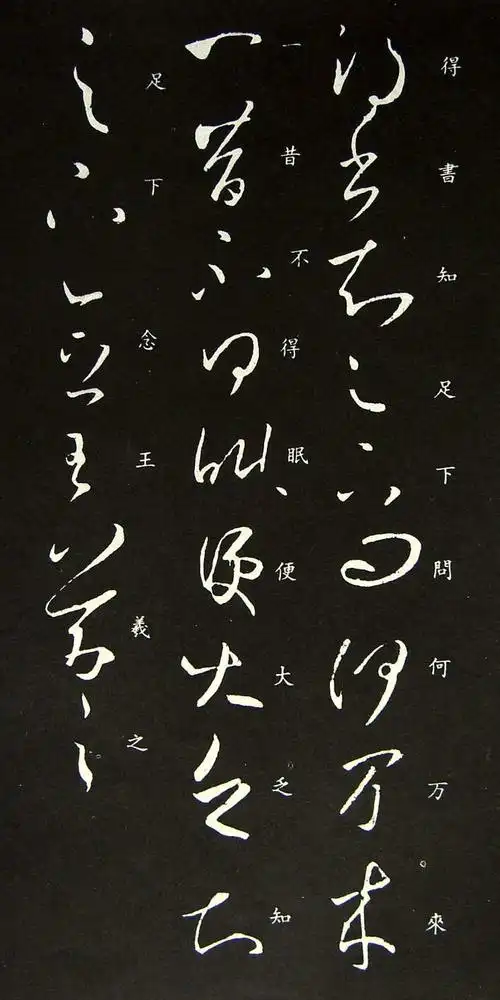 得書知足下問何万來
一昔不得眠便大乏知
足下念王羲之